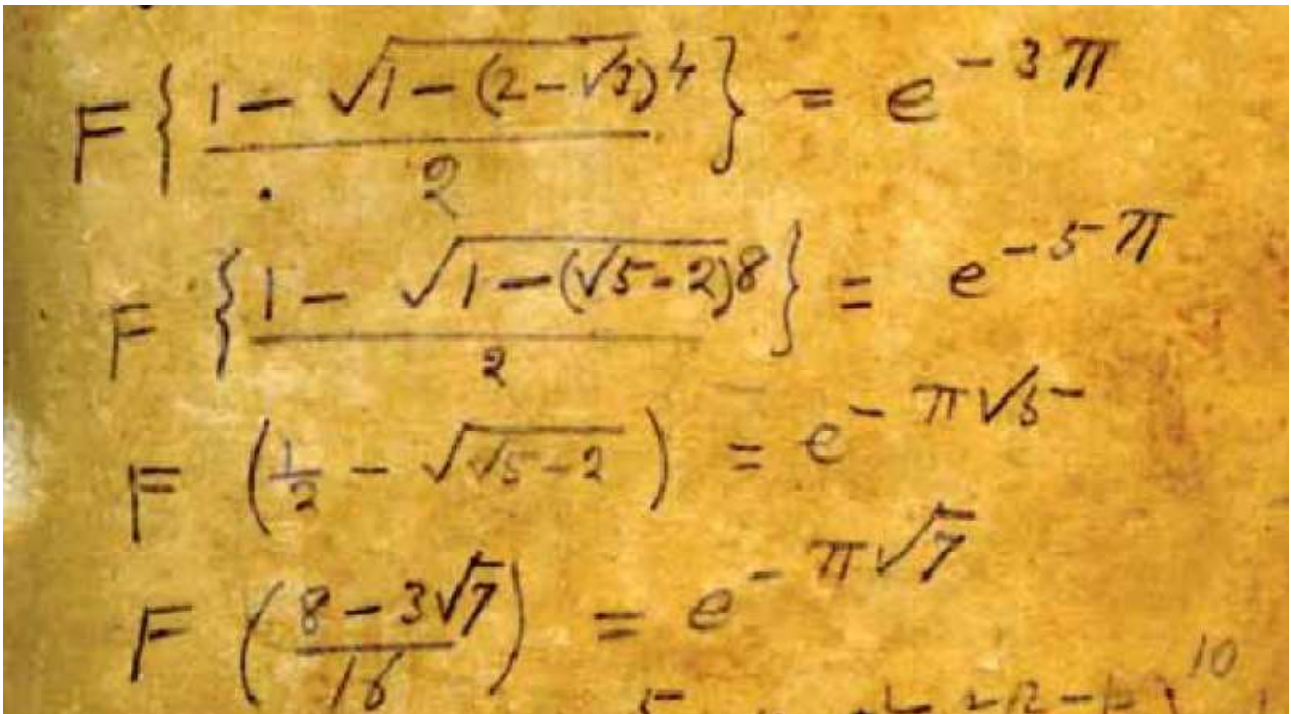 F{(1 − √(1 − (2 − √3)^4))/2} = e^{−3π}
F{(1 − √(1 − (√5 − 2)^8))/2} = e^{−5π}
F(1/2 − √(√5 − 2)) = e^{−π√5}
F((8 − 3√7)/16) = e^{−π√7}
10